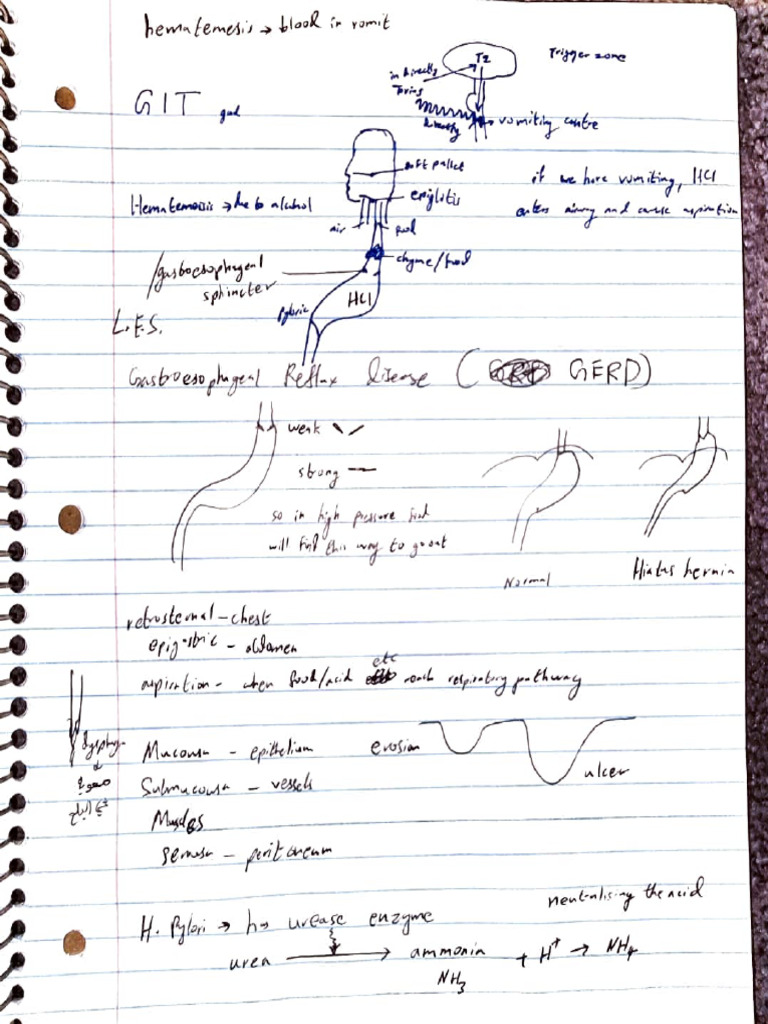 hematemesis → blood in vomit
TZ
Trigger zone
in directly
toxins
GIT
directly
vomiting centre
soft pallet
if we have vomiting, HCl
epiglitis
Hematemesis → due to alcohol
enters airway and cause aspiration
air
food
chyme/food
/gastroesophageal
sphincter
HCl
Pyloric
L.E.S.
Gastroesophageal Reflux disease ( GERD)
weak
strong
so in high pressure food
will find this way to go out
Normal
Hiatus hernia
retrosternal - chest
epigastric - abdomen
etc
aspiration - when food/acid reach respiratory pathway
dysphagia
صعوبة
في البلع
Mucousa - epithelium
erosion
ulcer
Submucousa - vessels
Muscles
serousa - peritoneum
neutralising the acid
H. Pylori → has urease enzyme
urea → ammonia + H⁺ → NH₄
NH₃